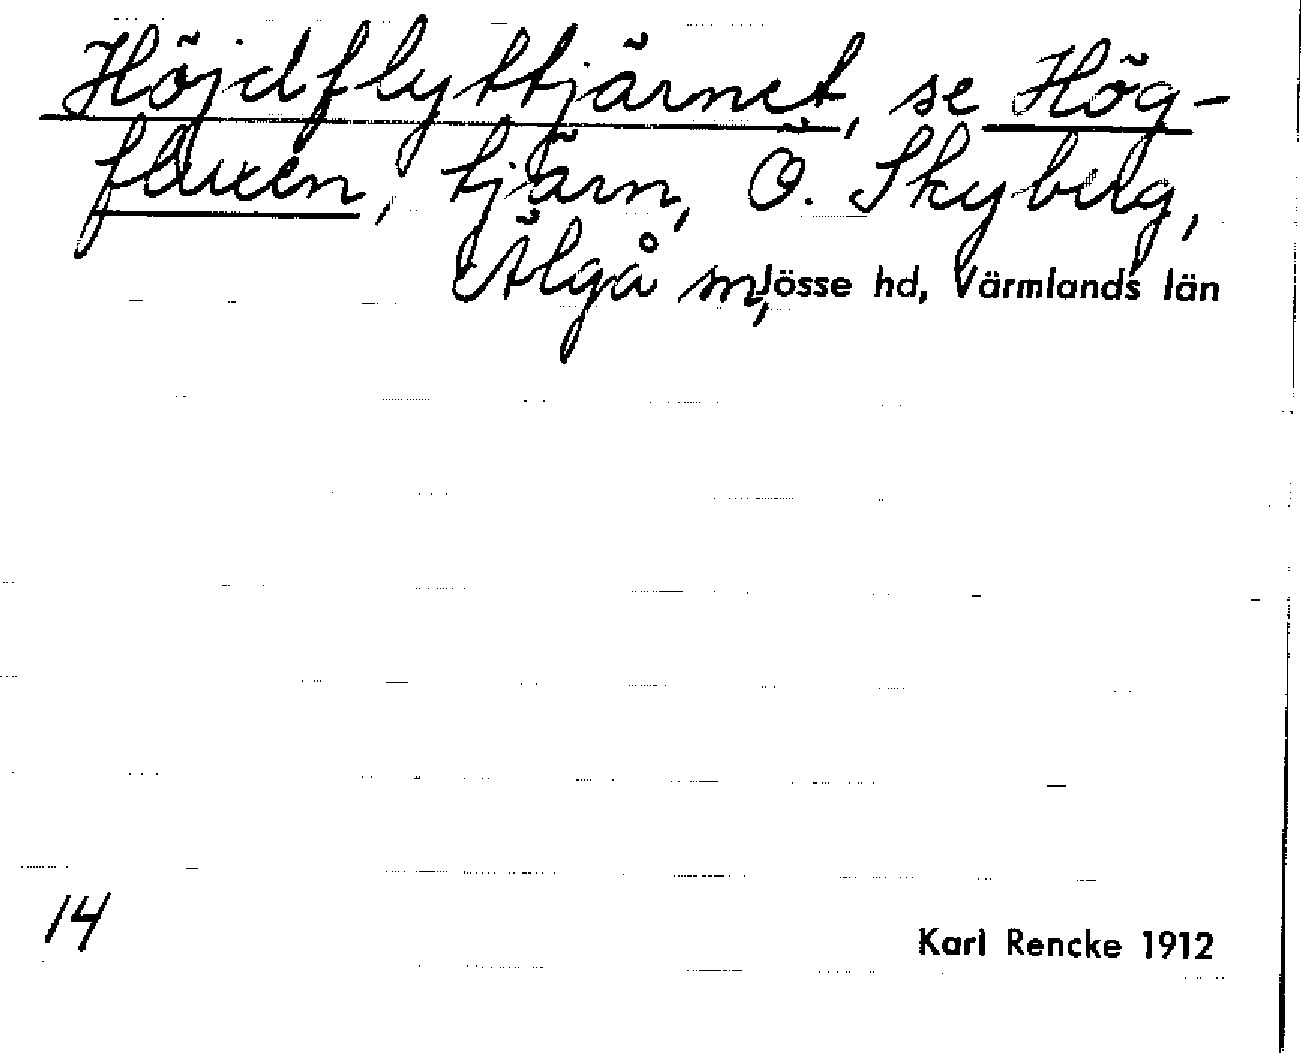 Höjdflyttjärnet, se Hög-
fluxen, tjärn, Ö. Skyberg,
Älgå sn, Jösse hd, Värmlands län
14
Karl Rencke 1912